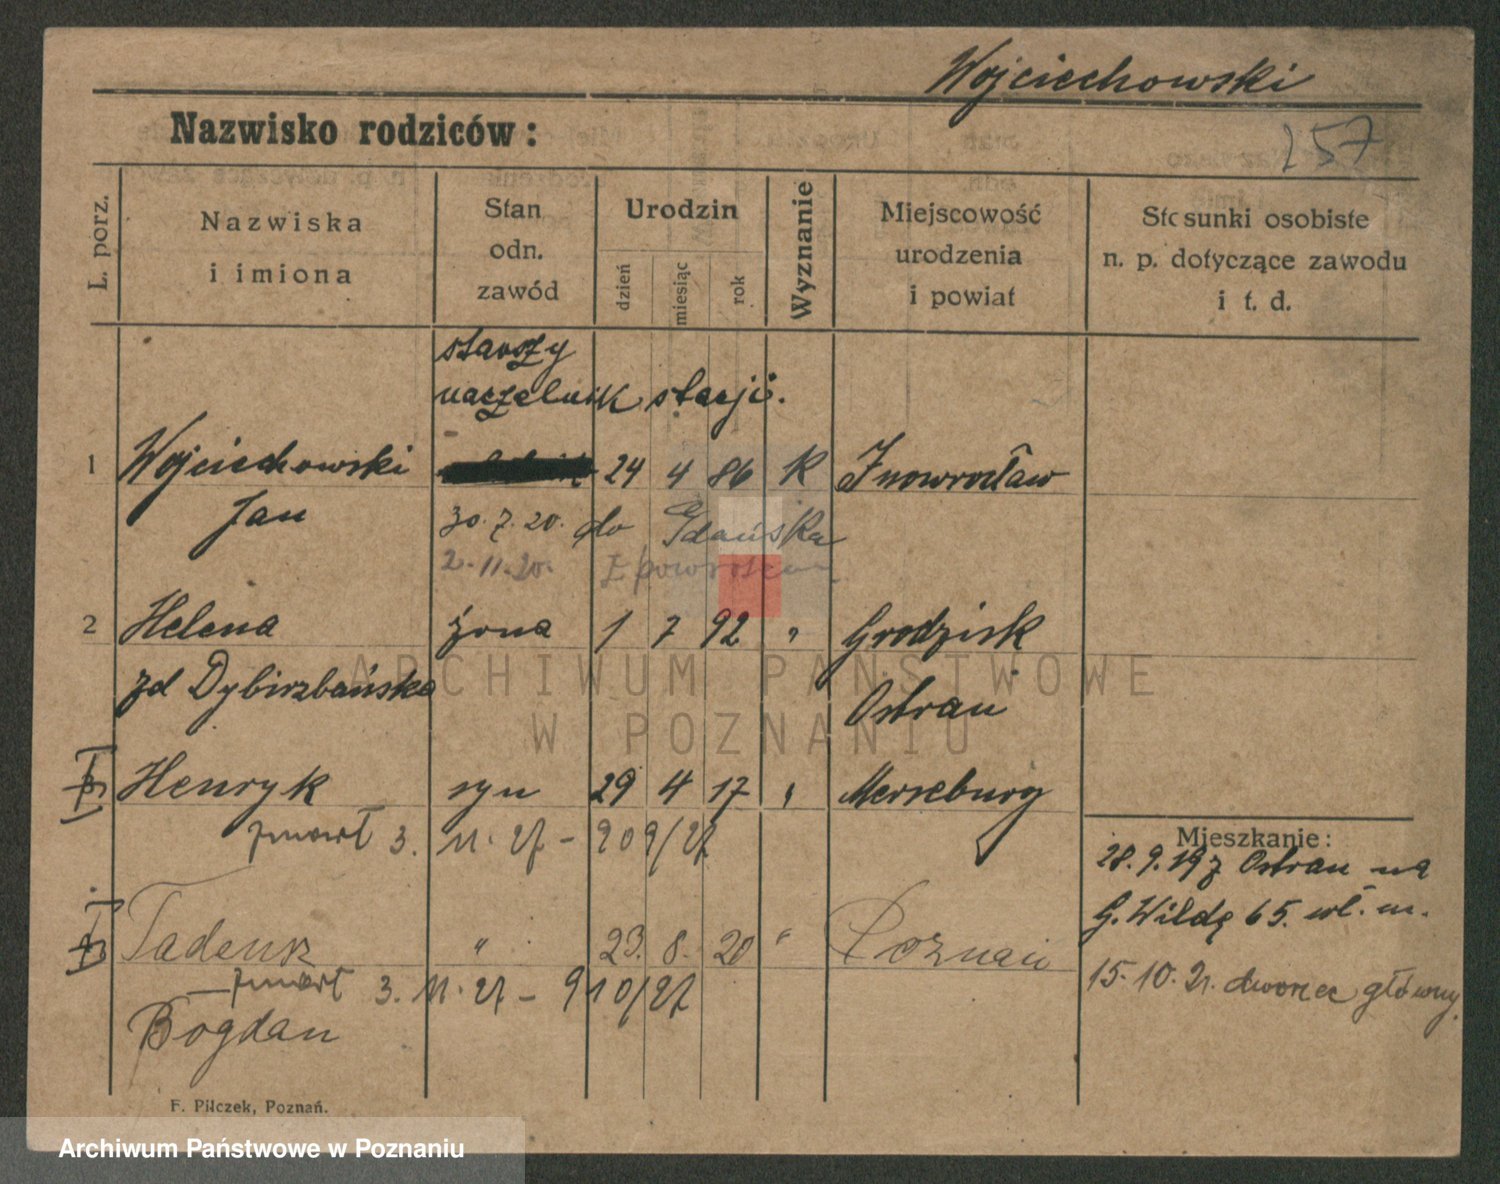 Wojciechowski
Nazwisko rodziców:
257
L. porz.
Nazwiska
i imiona
Stan
odn.
zawód
Urodzin
dzień
miesiąc
rok
Wyznanie
Miejscowość
urodzenia
i powiat
Stosunki osobiste
n. p. dotyczące zawodu
i t. d.
starszy
naczelnik stacji.
1 Wojciechowski 24 4 86 K Inowrocław
Jan 30. 7. 20. do Gdańska
2. 11. 20. Z powrotem
2 Helena żona 1 7 92 " Grodzisk
zd Dybizbańska Ostrau
3 Henryk syn 29 4 17 " Merseburg
zmarł 3. 11. 27 - 909/27
Mieszkanie:
28. 9. 19 z Ostrau na
G. Wildę 65. wł. m.
Tadeusz " 23. 8. 20 " Poznań
zmarł 3. 11. 27 - 910/27
15. 10. 21. dworzec główny.
Bogdan
F. Pilczek, Poznań.
ARCHIWUM PAŃSTWOWE
W POZNANIU
Archiwum Państwowe w Poznaniu